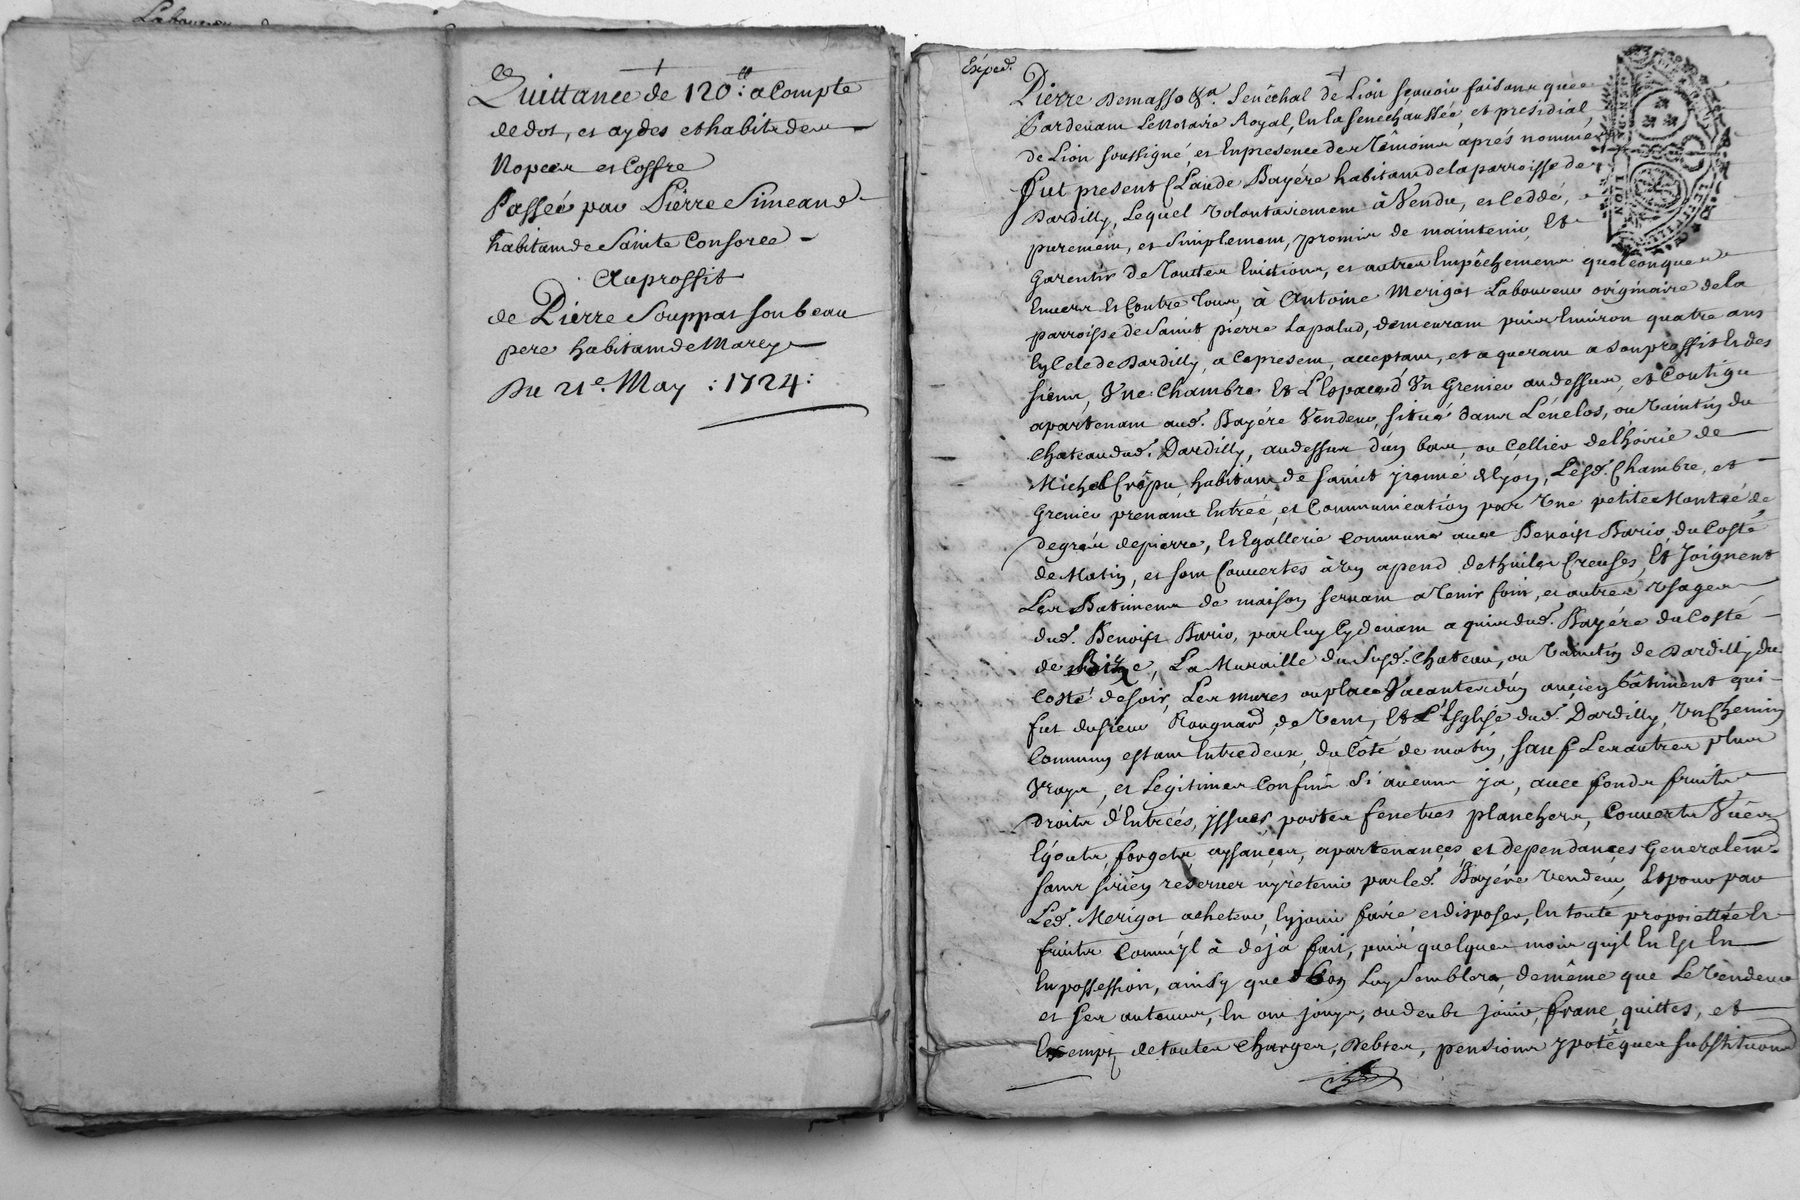 Quittance de 120ᵗᵗ: a Compte
de dot, et aydes et habits de
Nopces et Coffre
Passée par Pierre Simeand
habitant de Sainte Consorce
Au proffit
de Pierre Souppat son beau
pere habitant de Marcy
Du 21e. May : 1724 :
Exped.
Pierre Demasso &a. Senéchal de Lion sçavoir faisons que
Pardevant Le Notaire Royal, En la Senechaussée, et presidial
de Lion soussigné, et En presence des Témoins aprés nommés
fut present Claude Bayére habitant de la parroisse de
Dardilly, Lequel volontairement à Vendu, et Ceddé,
purement, et Simplement, promis de maintenir, Et
Garentir de Touttes Evictions, et autres Empêchemens quelconques
Envers Et Contre Tous, à Antoine Merigot Laboureur originaire de la
parroisse de Saint pierre Lapalud, demeurant puis Environ quatre ans
En Celle de Dardilly, a Ce present, acceptant, et aquerant a son proffit Et des
siens, Vne Chambre Et L'Espace d'Vn Grenier au dessus, et Contigu
apartenant aud. Bayére Vendeur, situé dans L'énclos, ou Vaintin du
Chateau dud. Dardilly, au dessus d'un bas, ou Cellier de l'hoirie de
Michel Crêpu, habitant de Saint Irenné à Lyon, Lesd. Chambre, et
Grenier prenant Entrée, et Communication par Vne petite Montée de
degrés de pierre, Et Gallerie commune avec Benoist Bario, du Costé
de Matin, et sont Couvertes à Un apend de thuiles Creuses, Et Joignent
Les Batimens de maison servant a Tenir foin, et autres Vsages
dud. Benoist Bario, par luy Cydevant aquis dud. Bayére du Costé
de Bize, La Muraille du Susd. Chateau, ou Vaintin de Dardilly du
Costé de soir, Les mures ou place Vacante d'un ancien bâtiment qui
fut du sieur Rougnard, de Vent, Et L'Esglise dud. Dardilly, Vn Chemin
Commun estant Entre deux, du Côté de matin, sauf Les autres plus
Vrays, et Legitimes Confins Si aucuns y a, avec fonds fruits
droits d'Entrées, yssues, portes fenetres planchers, Couverts Vües
Egouts, forgets, aysances, apartenances et dependances Generalem.
sans s'y rien reserver ny retenir par led. Bayére vendeur, Et pour par
Led. Merigot acheteur, En jouir faire et disposer, En toute proprietté Et
fruits Comm'yl à déja fait, puis quelques mois qu'il En Est En
En possession, ainsy que bon Luy Semblera, de même que Le Vendeur
et ses auteurs, En ont jouys, ou deub jouir, franc, quittes, et
Exempt de toutes charges, Debtes, pensions ypotéques substitutions